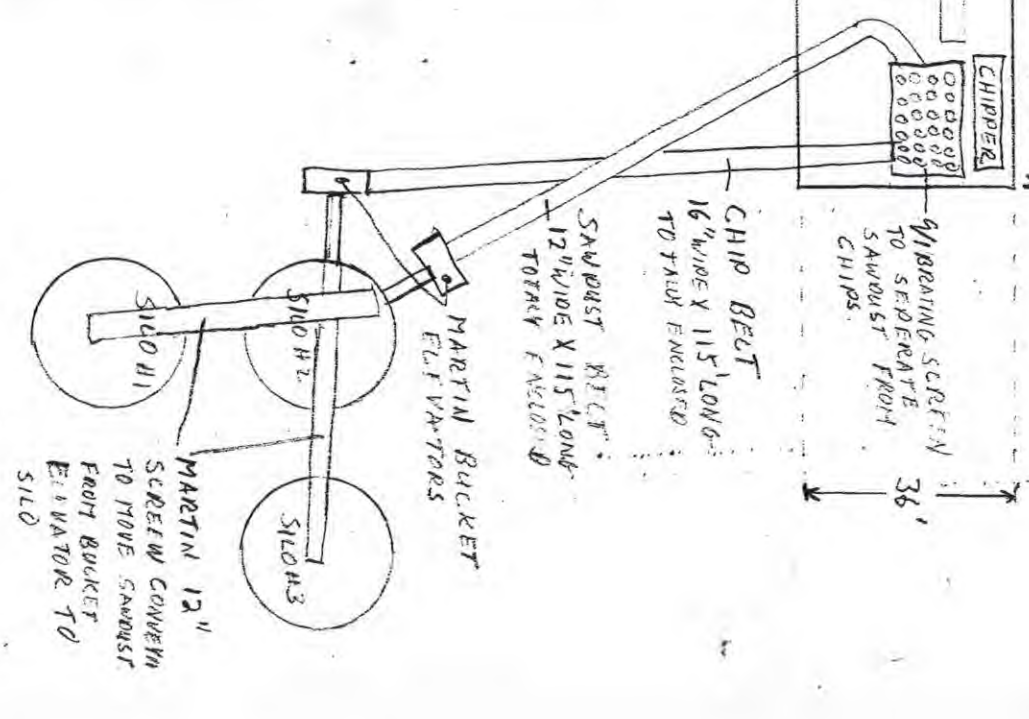 CHIPPER
VIBRATING SCREEN
TO SEPERATE
SAWDUST FROM
CHIPS.
36'
CHIP BELT
16" WIDE X 115' LONG
TOTALY ENCLOSED
SAWDUST BELT
12" WIDE X 115' LONG
TOTALY ENCLOSED
MARTIN BUCKET
ELEVATORS
SILO #1
SILO #2
SILO #3
MARTIN 12"
SCREW CONVEYR
TO MOVE SAWDUST
FROM BUCKET
ELEVATOR TO
SILO